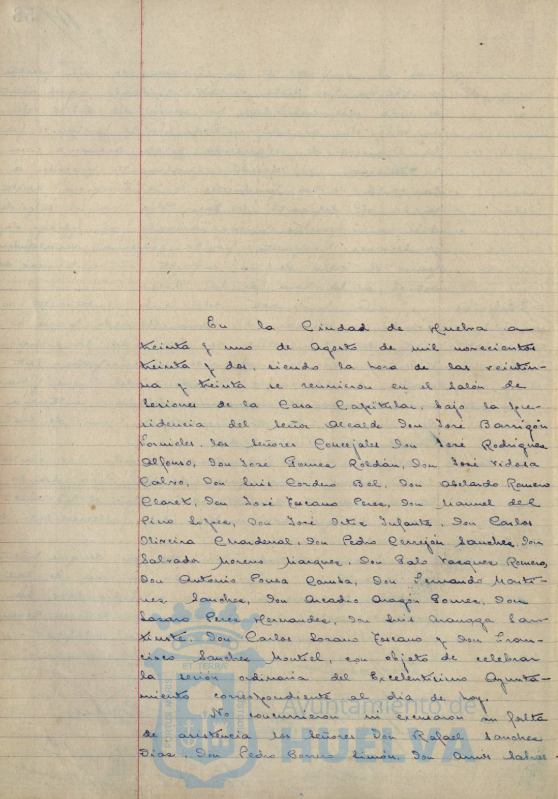 En la Ciudad de Huelva a
treinta y uno de Agosto de mil novecientos
treinta y dos, siendo la hora de las veintiu-
na y treinta se reunieron en el Salón de
Sesiones de la Casa Capitular, bajo la pre-
sidencia del Señor Alcalde Don José Barrigón
Fornieles, los Señores Concejales Don José Rodríguez
Alfonso, Don José Ponce Roldán, Don José Vidosa
Calvo, Don Luis Cordero Bel, Don Abelardo Romero
Claret, Don José Toscano Perez, Don Manuel del
Pino Lopez, Don José Ortiz Infante, Don Carlos
Oliveira Chardenal, Don Pedro Cerrejón Sanchez, Don
Salvador Moreno Marquez, Don Galo Vazquez Romero,
Don Antonio Pousa Camba, Don Fernando Marti-
nez Sanchez, Don Arcadio Aragón Gomez, Don
Lazaro Perez Hernandez, Don Luis
Don Carlos Lozano Toscano y Don Fran-
cisco Sanchez Montiel, con objeto de celebrar
la sesión ordinaria del Excelentísimo Ayunta-
miento correspondiente al dia de hoy.
No concurrieron ni excusaron su falta
de asistencia los Señores Don Rafael Sanchez
Diaz, Don Pedro Borrero Limón, Don
Ayuntamiento de
HUELVA
ET TERRA